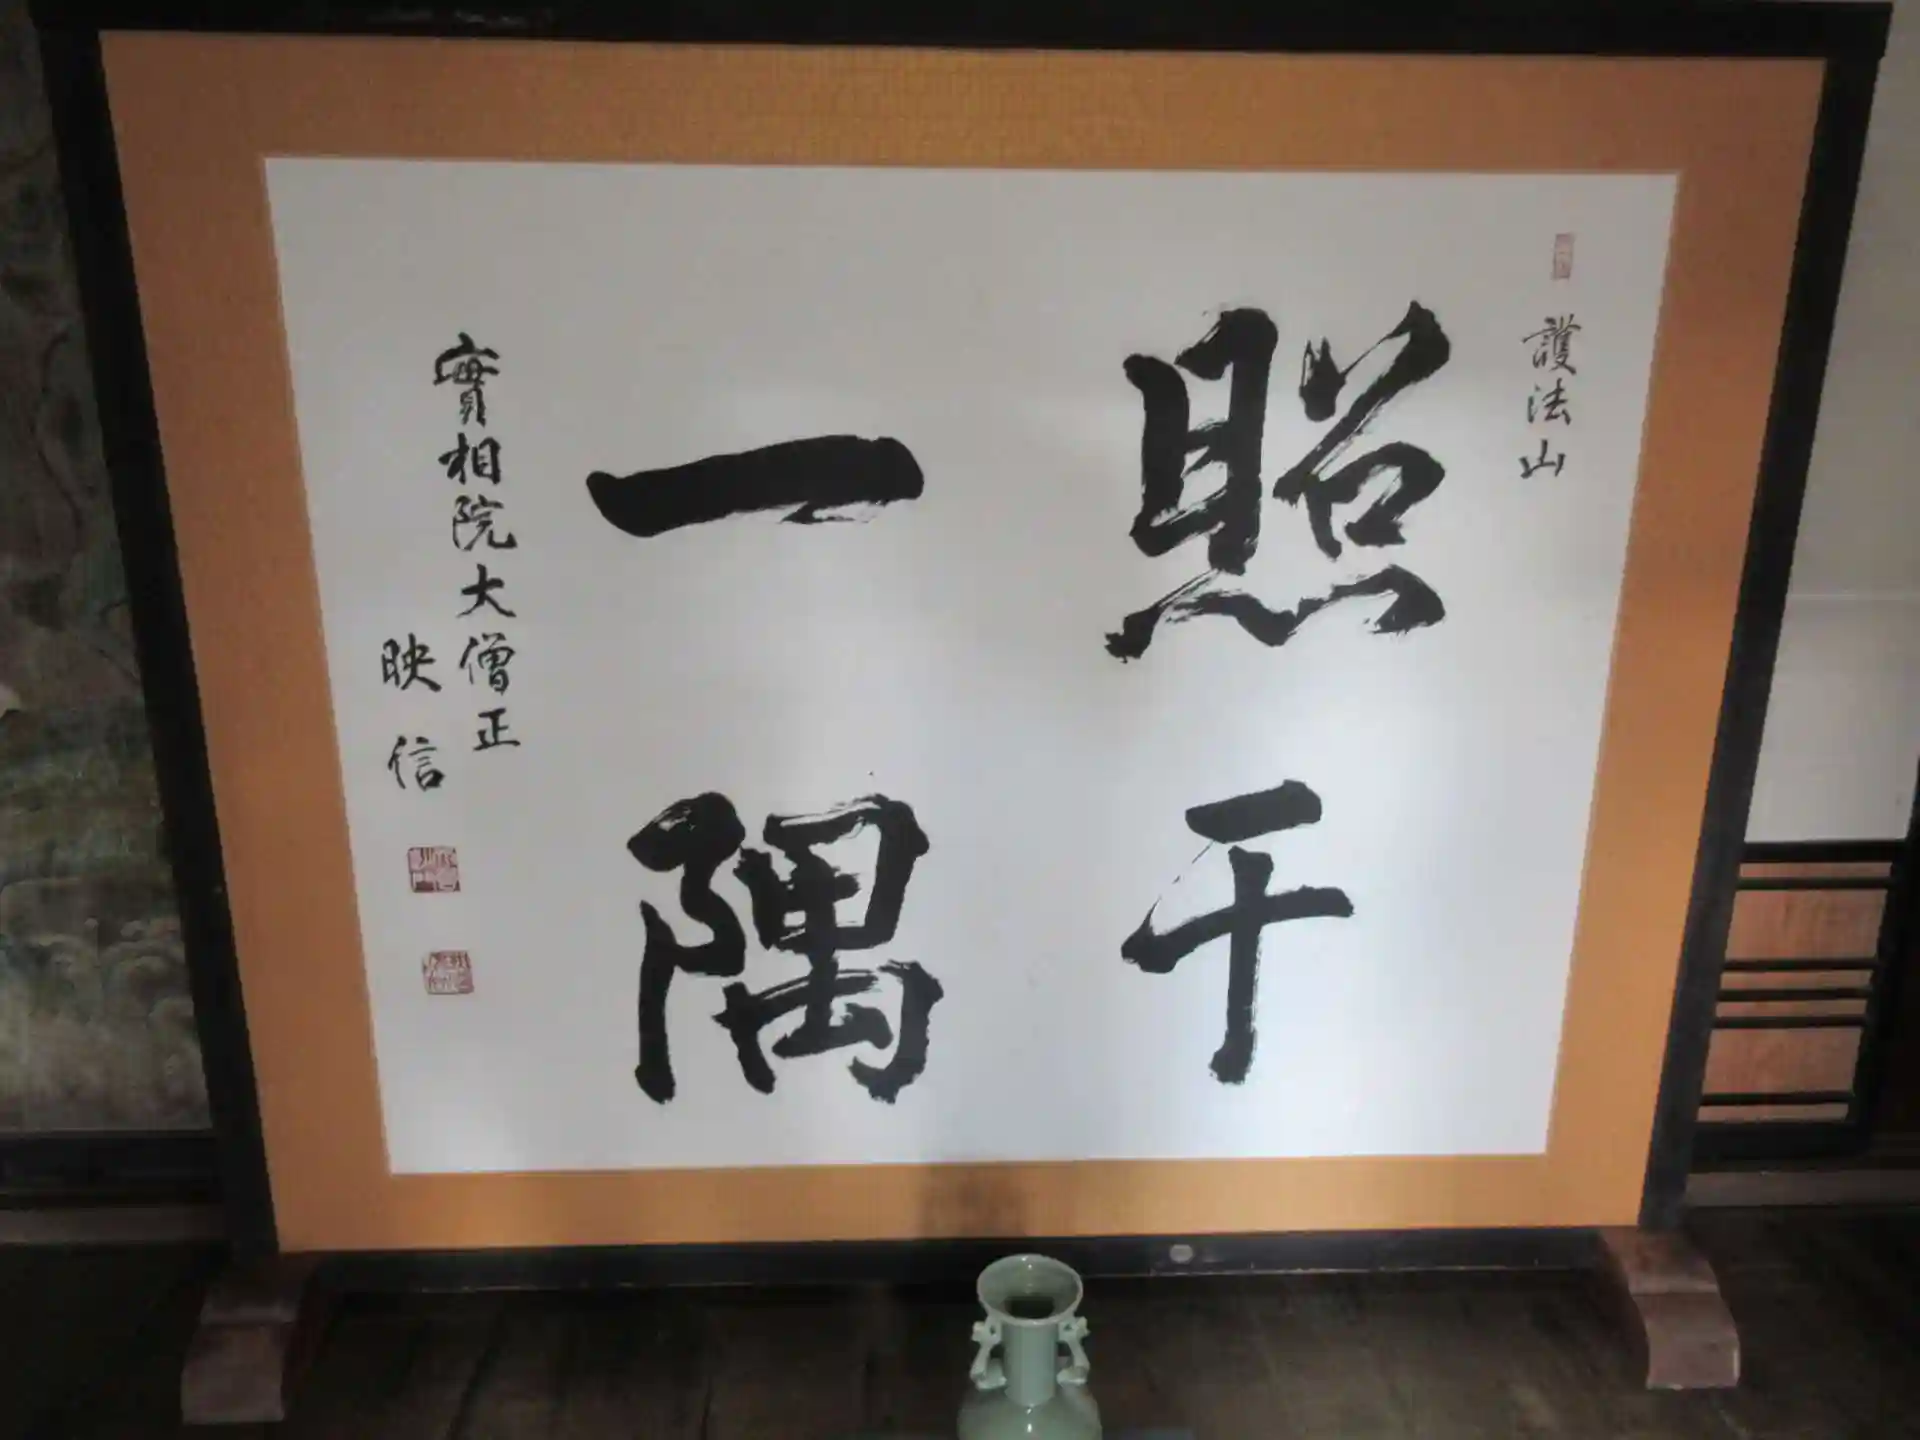 護法山
照于
一隅
實相院大僧正
映信